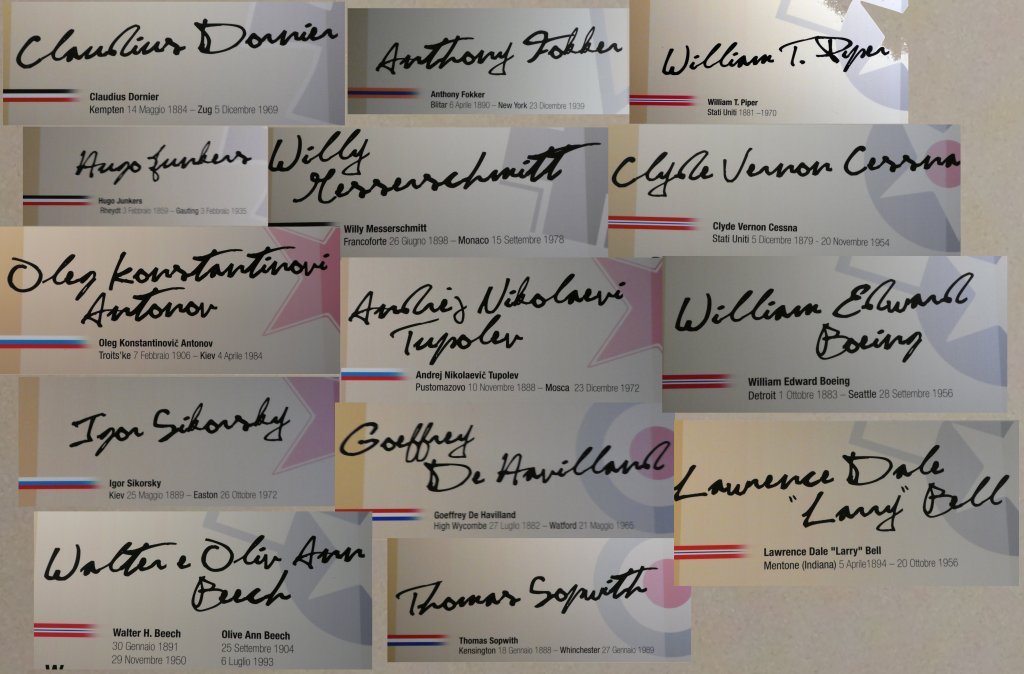 Claudius Dornier
Claudius Dornier
Kempten 14 Maggio 1884 – Zug 5 Dicembre 1969
Anthony Fokker
Anthony Fokker
Blitar 6 Aprile 1890 – New York 23 Dicembre 1939
William T. Piper
William T. Piper
Stati Uniti 1881 –1970
Hugo Junkers
Hugo Junkers
Rheydt 3 Febbraio 1859 – Gauting 3 Febbraio 1935
Willy
Messerschmitt
Willy Messerschmitt
Francoforte 26 Giugno 1898 – Monaco 15 Settembre 1978
Clyde Vernon Cessna
Clyde Vernon Cessna
Stati Uniti 5 Dicembre 1879 - 20 Novembre 1954
Oleg Konstantinovi
Antonov
Oleg Konstantinovič Antonov
Troits'ke 7 Febbraio 1906 – Kiev 4 Aprile 1984
Andrej Nikolaevi
Tupolev
Andrej Nikolaevič Tupolev
Pustomazovo 10 Novembre 1888 – Mosca 23 Dicembre 1972
William Edward
Boeing
William Edward Boeing
Detroit 1 Ottobre 1883 – Seattle 28 Settembre 1956
Igor Sikorsky
Igor Sikorsky
Kiev 25 Maggio 1889 – Easton 26 Ottobre 1972
Goeffrey
De Havilland
Goeffrey De Havilland
High Wycombe 27 Luglio 1882 – Watford 21 Maggio 1965
Lawrence Dale
"Larry" Bell
Lawrence Dale "Larry" Bell
Mentone (Indiana) 5 Aprile1894 – 20 Ottobre 1956
Walter e Oliv Ann
Beech
Walter H. Beech
30 Gennaio 1891
29 Novembre 1950
Olive Ann Beech
25 Settembre 1904
6 Luglio 1993
Thomas Sopwith
Thomas Sopwith
Kensington 18 Gennaio 1888 – Whinchester 27 Gennaio 1989